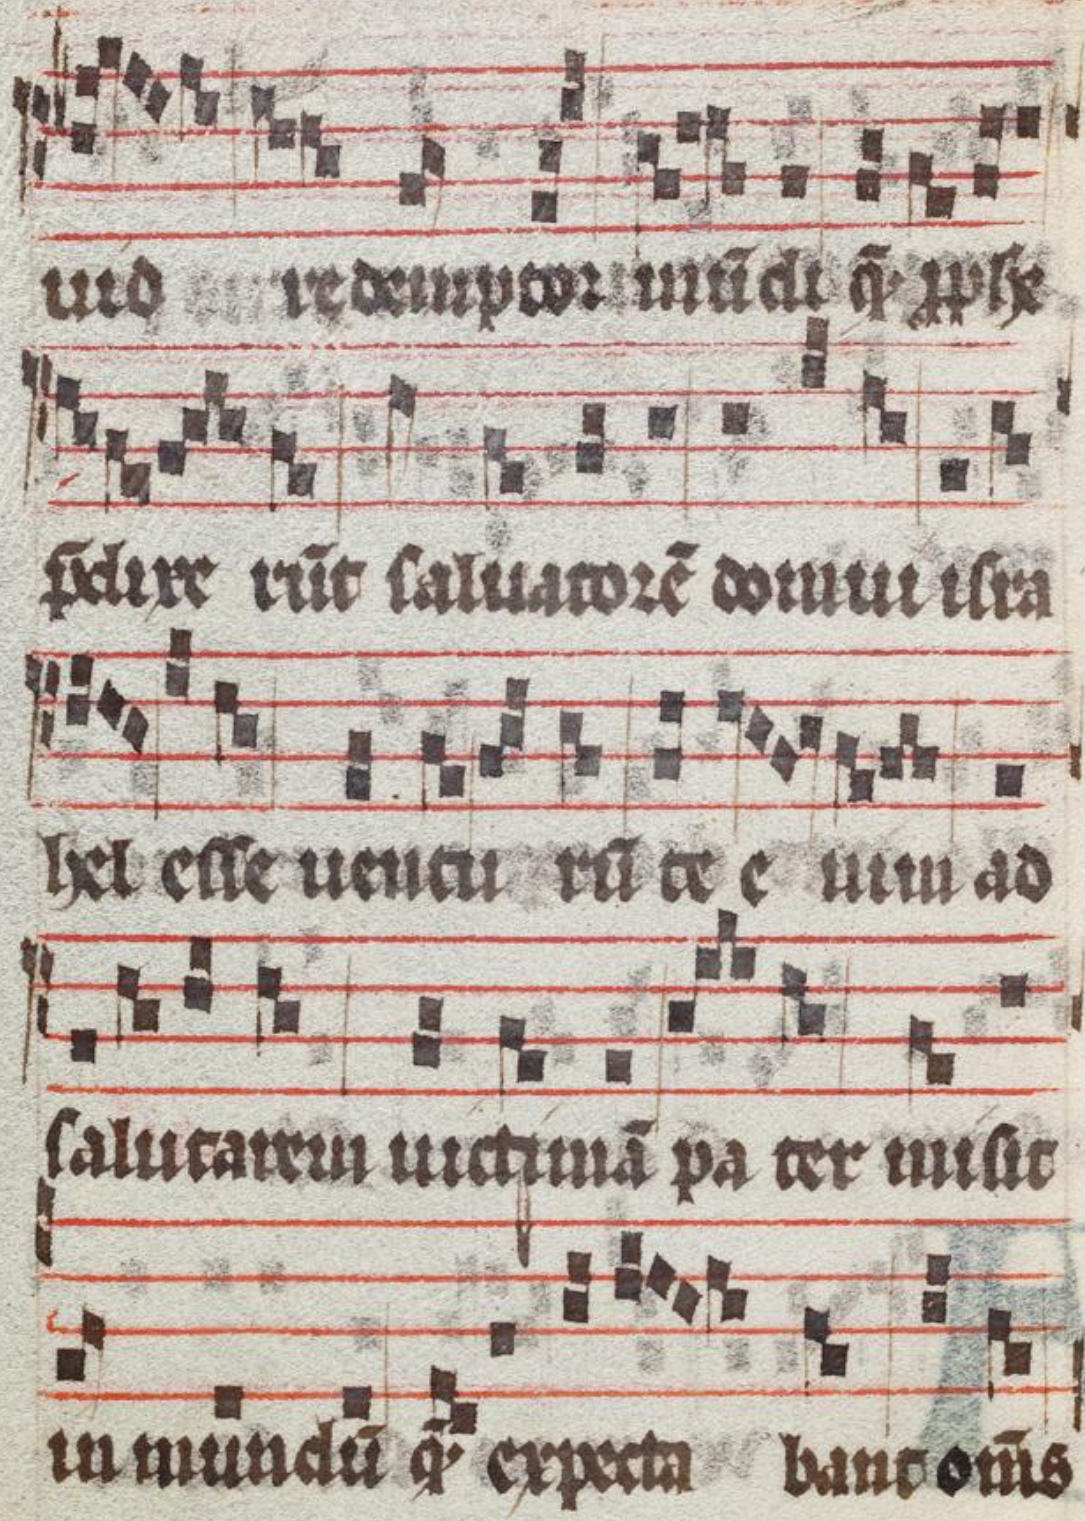 uid redemptor mūdi q̄ ꝓphe
p̄dixe rūt saluatorē domui isra
hel esse uentu rū te e nim ad
salutarem uictimā pa ter misit
in mundū q̄ expecta bant om̄s